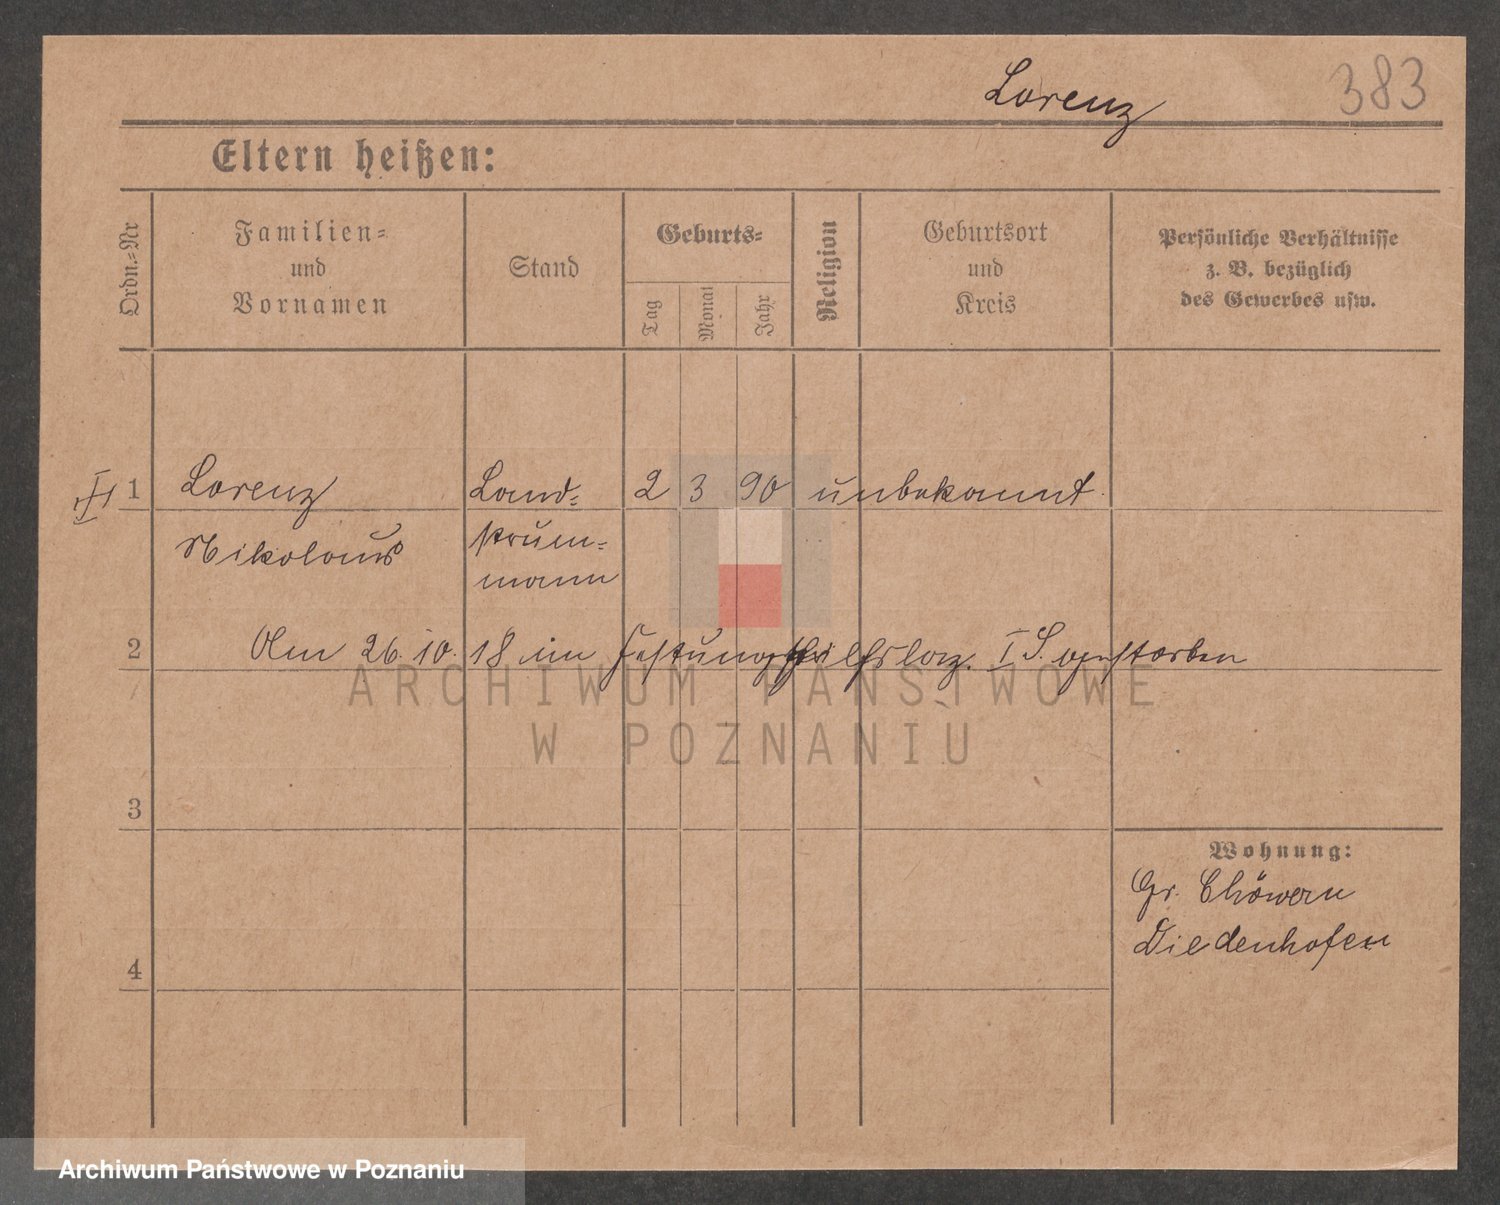 Lorenz
383
Eltern heißen:
Ordn.-Nr
Familien-
und
Vornamen
Stand
Geburts-
Tag
Monat
Jahr
Religion
Geburtsort
und
Kreis
Persönliche Verhältnisse
z. B. bezüglich
des Gewerbes usw.
1 Lorenz Land- 2 3 90 unbekannt
Nikolaus
mann
2 Am 26. 10. 18 im Festungshilfslaz. I S. gestorben
ARCHIWUM PAŃSTWOWE
W POZNANIU
3
Wohnung:
Gr.
Diedenhofen
4
Archiwum Państwowe w Poznaniu